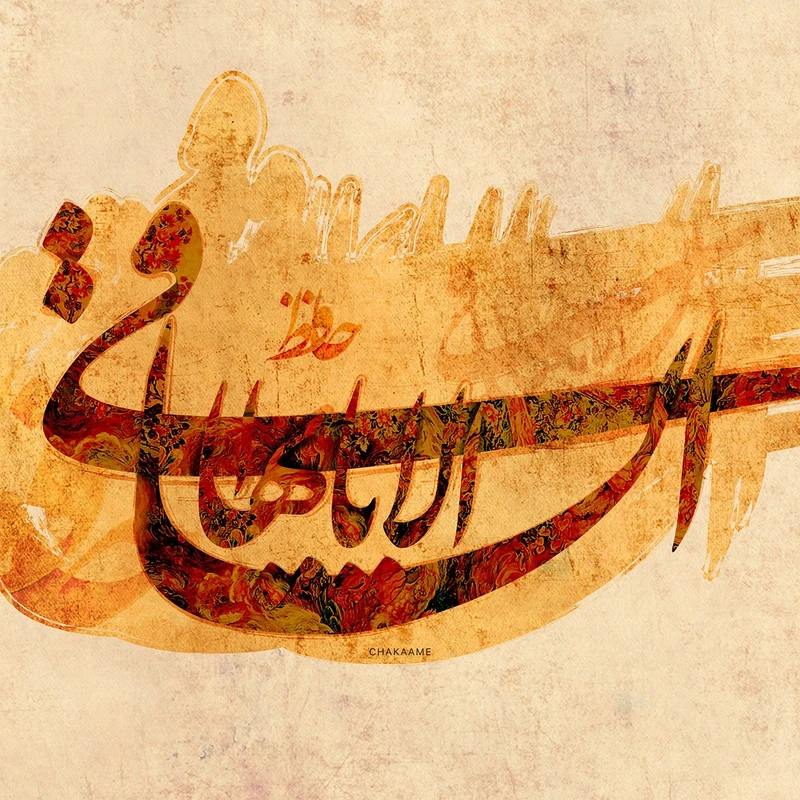 حافظ
الا یا ایها الساقی
CHAKAAME